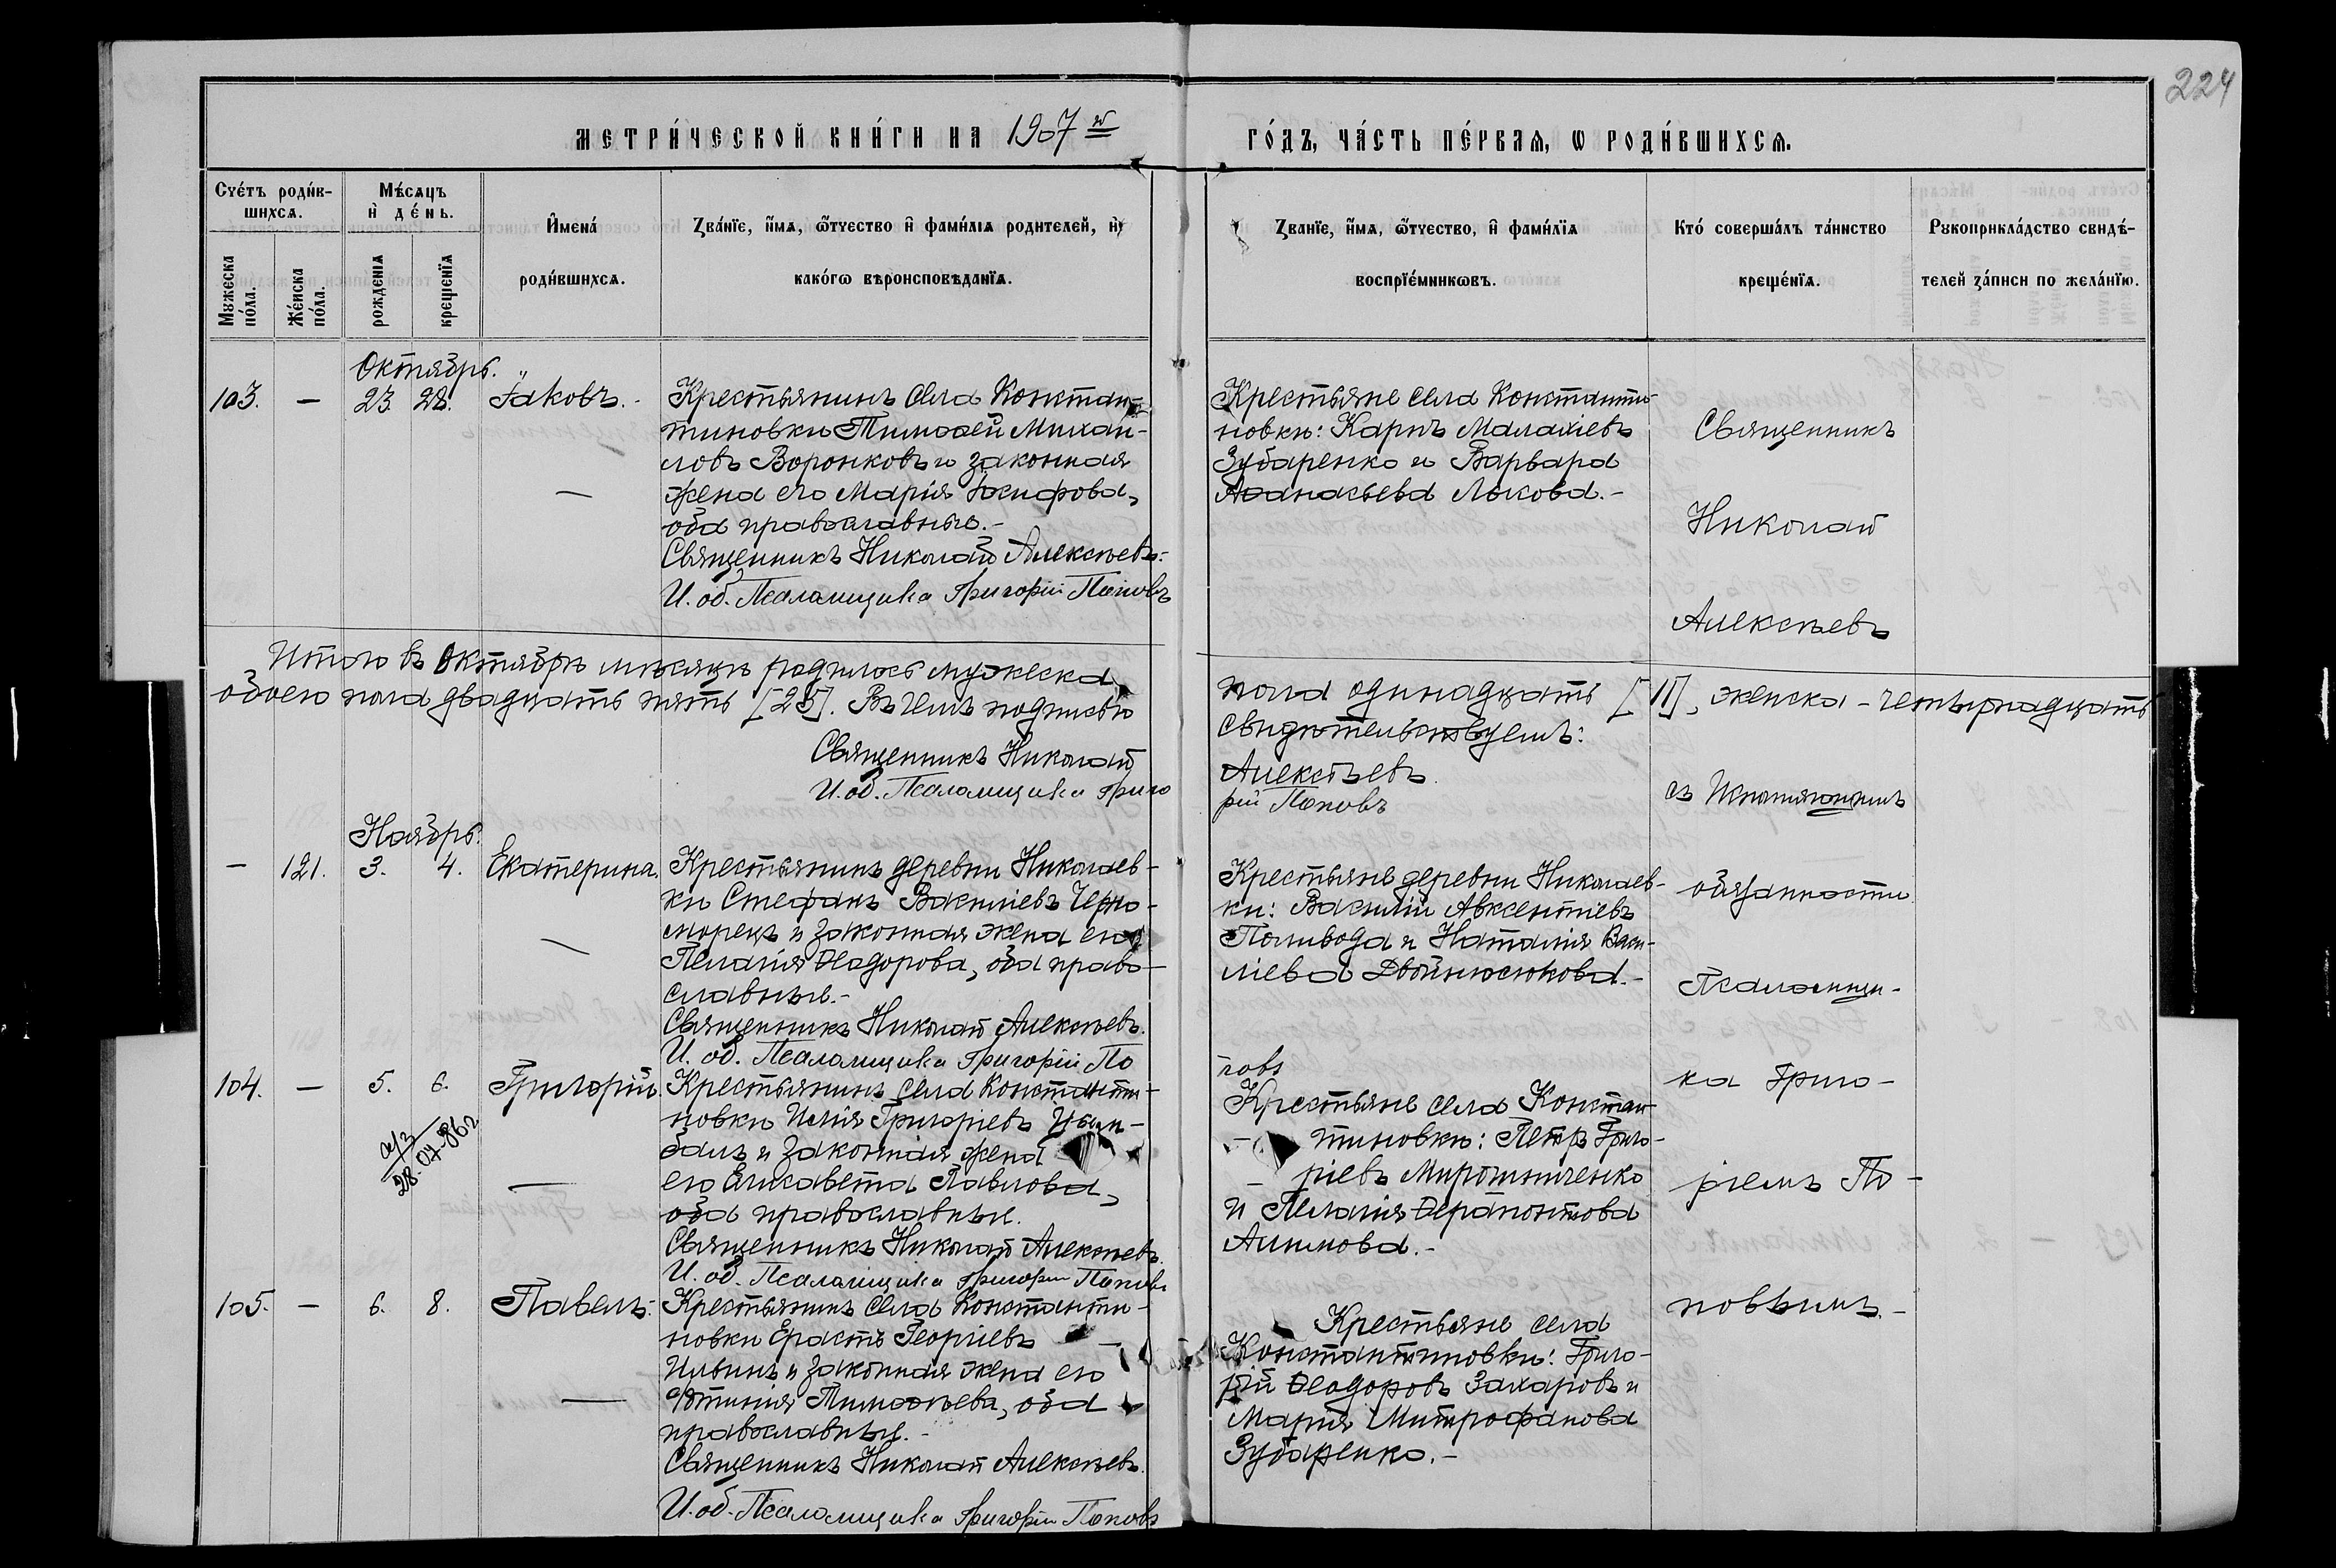 224
МЕТРИ́ЧЕСКОЙ КНИ́ГИ НА 1907 й
ГО́ДЪ, ЧА́СТЬ ПЕ́РВАѦ, Ѡ РОДИ́ВШИХСѦ.
Сче́тъ роди́в-
шихсѧ.
Мꙋжеска по́ла.
Же́нска по́ла.
Мѣ́сѧцъ
и҆ де́нь.
рожденїѧ
крещенїѧ
И҆мена́
роди́вшихсѧ.
Зва́нїе, и҆́мѧ, ѻ҆́тчество и҆ фами́лїѧ родителей, и҆
како́гѡ вѣроисповѣ́данїѧ.
Званїе, и҆́мѧ, ѻ҆́тчество, и҆ фами́лїѧ
воспрїе́мникѡвъ.
Кто́ соверша́лъ та́инство
креще́нїѧ.
Рꙋкоприкла́дство свидѣ́-
телей за́писи по жела́нїю.
Октябрь.
103. — 23. 28. Іаковъ.
Крестьянинъ села Констан-
тиновки Тимоѳей Михаи-
ловъ Воронковъ и законная
жена его Марія Іосифова,
оба православные.-
Священникъ Николай Алексѣевъ.
И. об. Псаломщика Григорій Поповъ
Крестьяне села Константи-
новки: Карпъ Малахіевъ
Зубаренко и Варвара
Аѳанасьева Лыкова.-
Священникъ
Николай
Алексѣевъ
Итого въ Октябрѣ мѣсяцѣ родилось мужеска
пола одинадцать [11], женска - четырнадцать
обоего пола двадцать пять [25]. Въ чемъ подписью
свидѣтельствуемъ:
Священникъ Николай
Алексѣевъ
И. об. Псаломщика Григо
рій Поповъ
съ
обязанности
Псаломщи-
ка Григо-
ріемъ По-
повымъ.-
Ноябрь.
— 121. 3. 4. Екатерина.
Крестьянинъ деревни Николаев-
ки Стефанъ Василіевъ Черно-
морецъ и законная жена его
Пелагія Ѳеодорова, оба право-
славные.-
Священникъ Николай Алексѣевъ.
И. об. Псаломщика Григорій По
повъ
Крестьяне деревни Николаев-
ки: Василій Авксентіевъ
Поливода и Наталія Васи-
ліева Двойнюсюкова.-
104. — 5. 6. Григорій.
а/з
28.04.86г
Крестьянинъ села Константи-
новки Илія Григоріевъ
и законная жена
его Елисавета Павлова,
оба православные.
Священникъ Николай Алексѣевъ.
И. об. Псаломщика Григорій Поповъ
Крестьяне села Констан-
тиновки: Петръ Григо-
ріевъ Мирошниченко
и Пелагія Ѳерапонтова
Алимова.-
105. — 6. 8. Павелъ.
Крестьянинъ села Константи-
новки Ерастъ Георгіевъ
Ильинъ и законная жена его
Фотинія Тимоѳеева, оба
православные.-
Священникъ Николай Алексѣевъ.
И. об. Псаломщика Григорій Поповъ
Крестьяне села
Константиновки: Григо-
рій Ѳеодоровъ Захаровъ и
Марія Митрофанова
Зубаренко.-